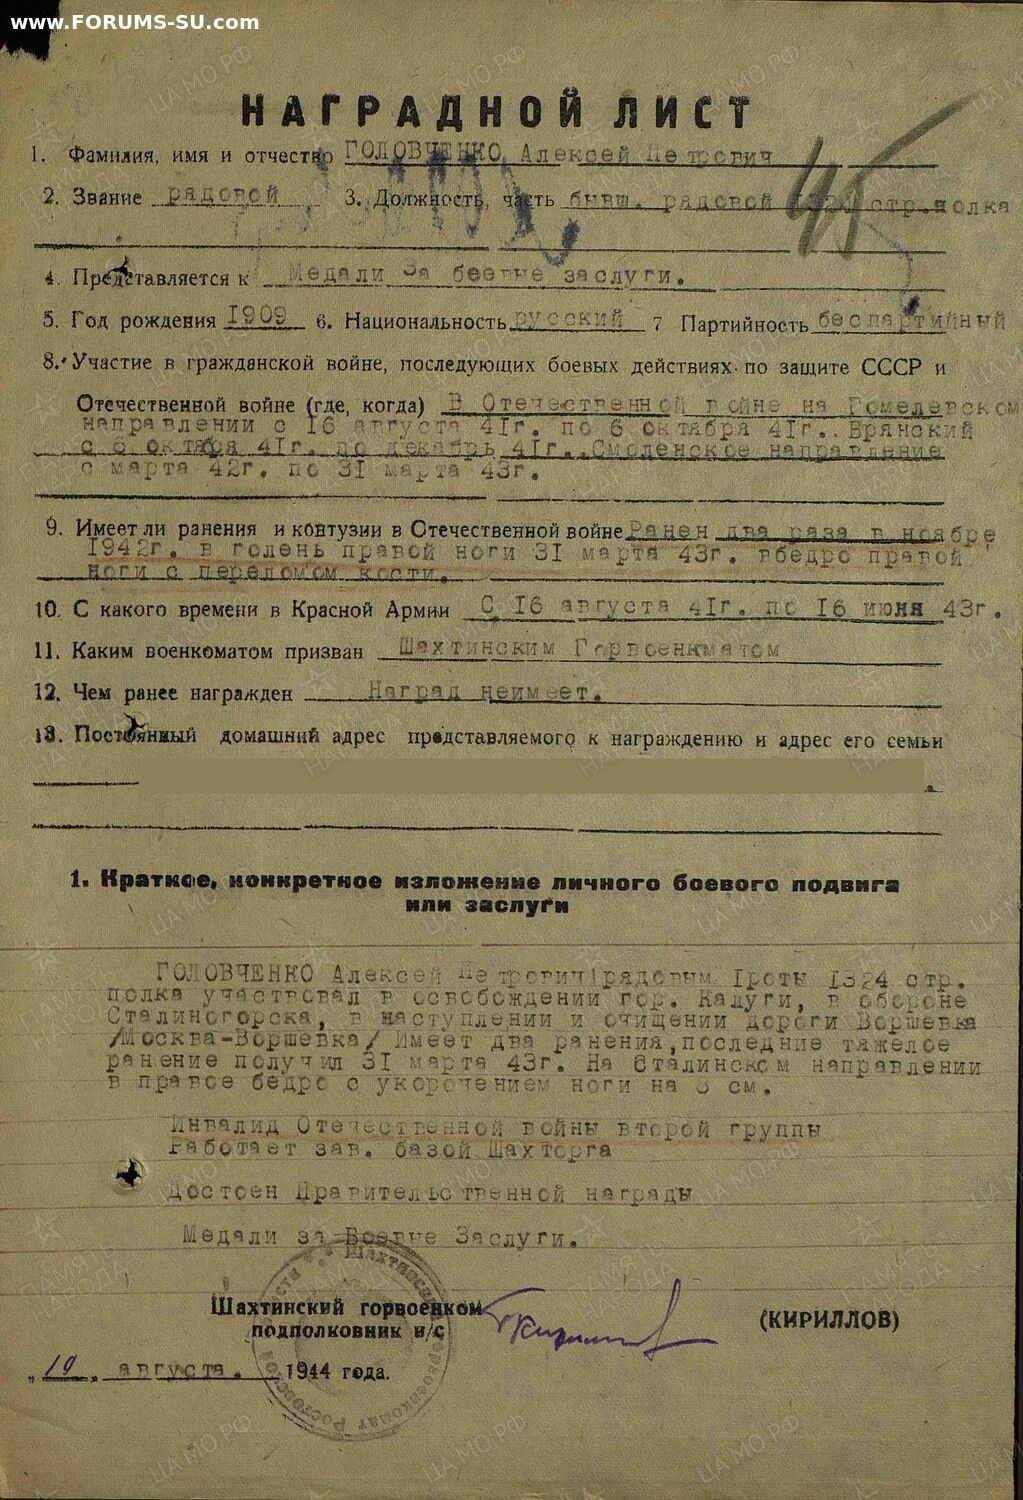 www.FORUMS-SU.com
НАГРАДНОЙ ЛИСТ
1. Фамилия, имя и отчество ГОЛОВЧЕНКО Алексей Петрович
45
2. Звание рядовой 3. Должность, часть бывш. рядовой стр.полка
4. Представляется к Медали За боевые заслуги.
5. Год рождения 1909 6. Национальность русский 7 Партийность беспартийный
8. Участие в гражданской войне, последующих боевых действиях по защите СССР и
Отечественной войне (где, когда) В Отечественной войне на Гомелевском
направлении с 16 августа 41г. по 6 октября 41г.. Брянский
с 6 октября 41г. по декабрь 41г..Смоленское направление
с марта 42г. по 31 марта 43г.
9. Имеет ли ранения и контузии в Отечественной войне Ранен два раза в ноябре
1942г. в голень правой ноги 31 марта 43г. вбедро правой
ноги с переломом кости.
10. С какого времени в Красной Армии С 16 августа 41г. по 16 июня 43г.
11. Каким военкоматом призван Шахтинским Горвоенкоматом
12. Чем ранее награжден Наград неимеет.
13. Постоянный домашний адрес представляемого к награждению и адрес его семьи
1. Краткое, конкретное изложение личного боевого подвига
или заслуги
ГОЛОВЧЕНКО Алексей Петрович рядовым 1роты 1324 стр.
полка участвовал в освобождении гор. Калуги, в обороне
Сталиногорска, в наступлении и очищении дороги Воршевка
/Москва-Воршевка/ Имеет два ранения,последние тяжелое
ранение получил 31 марта 43г. На Сталинском направлении
в правое бедро с укорочением ноги на см.
Инвалид Отечественной войны второй группы
Работает зав. базой Шахторга
Достоен Правительственной награды
Медали за Боевые Заслуги.
Шахтинский горвоенком
подполковник и/с
(КИРИЛЛОВ)
„19„ августа. 1944 года.